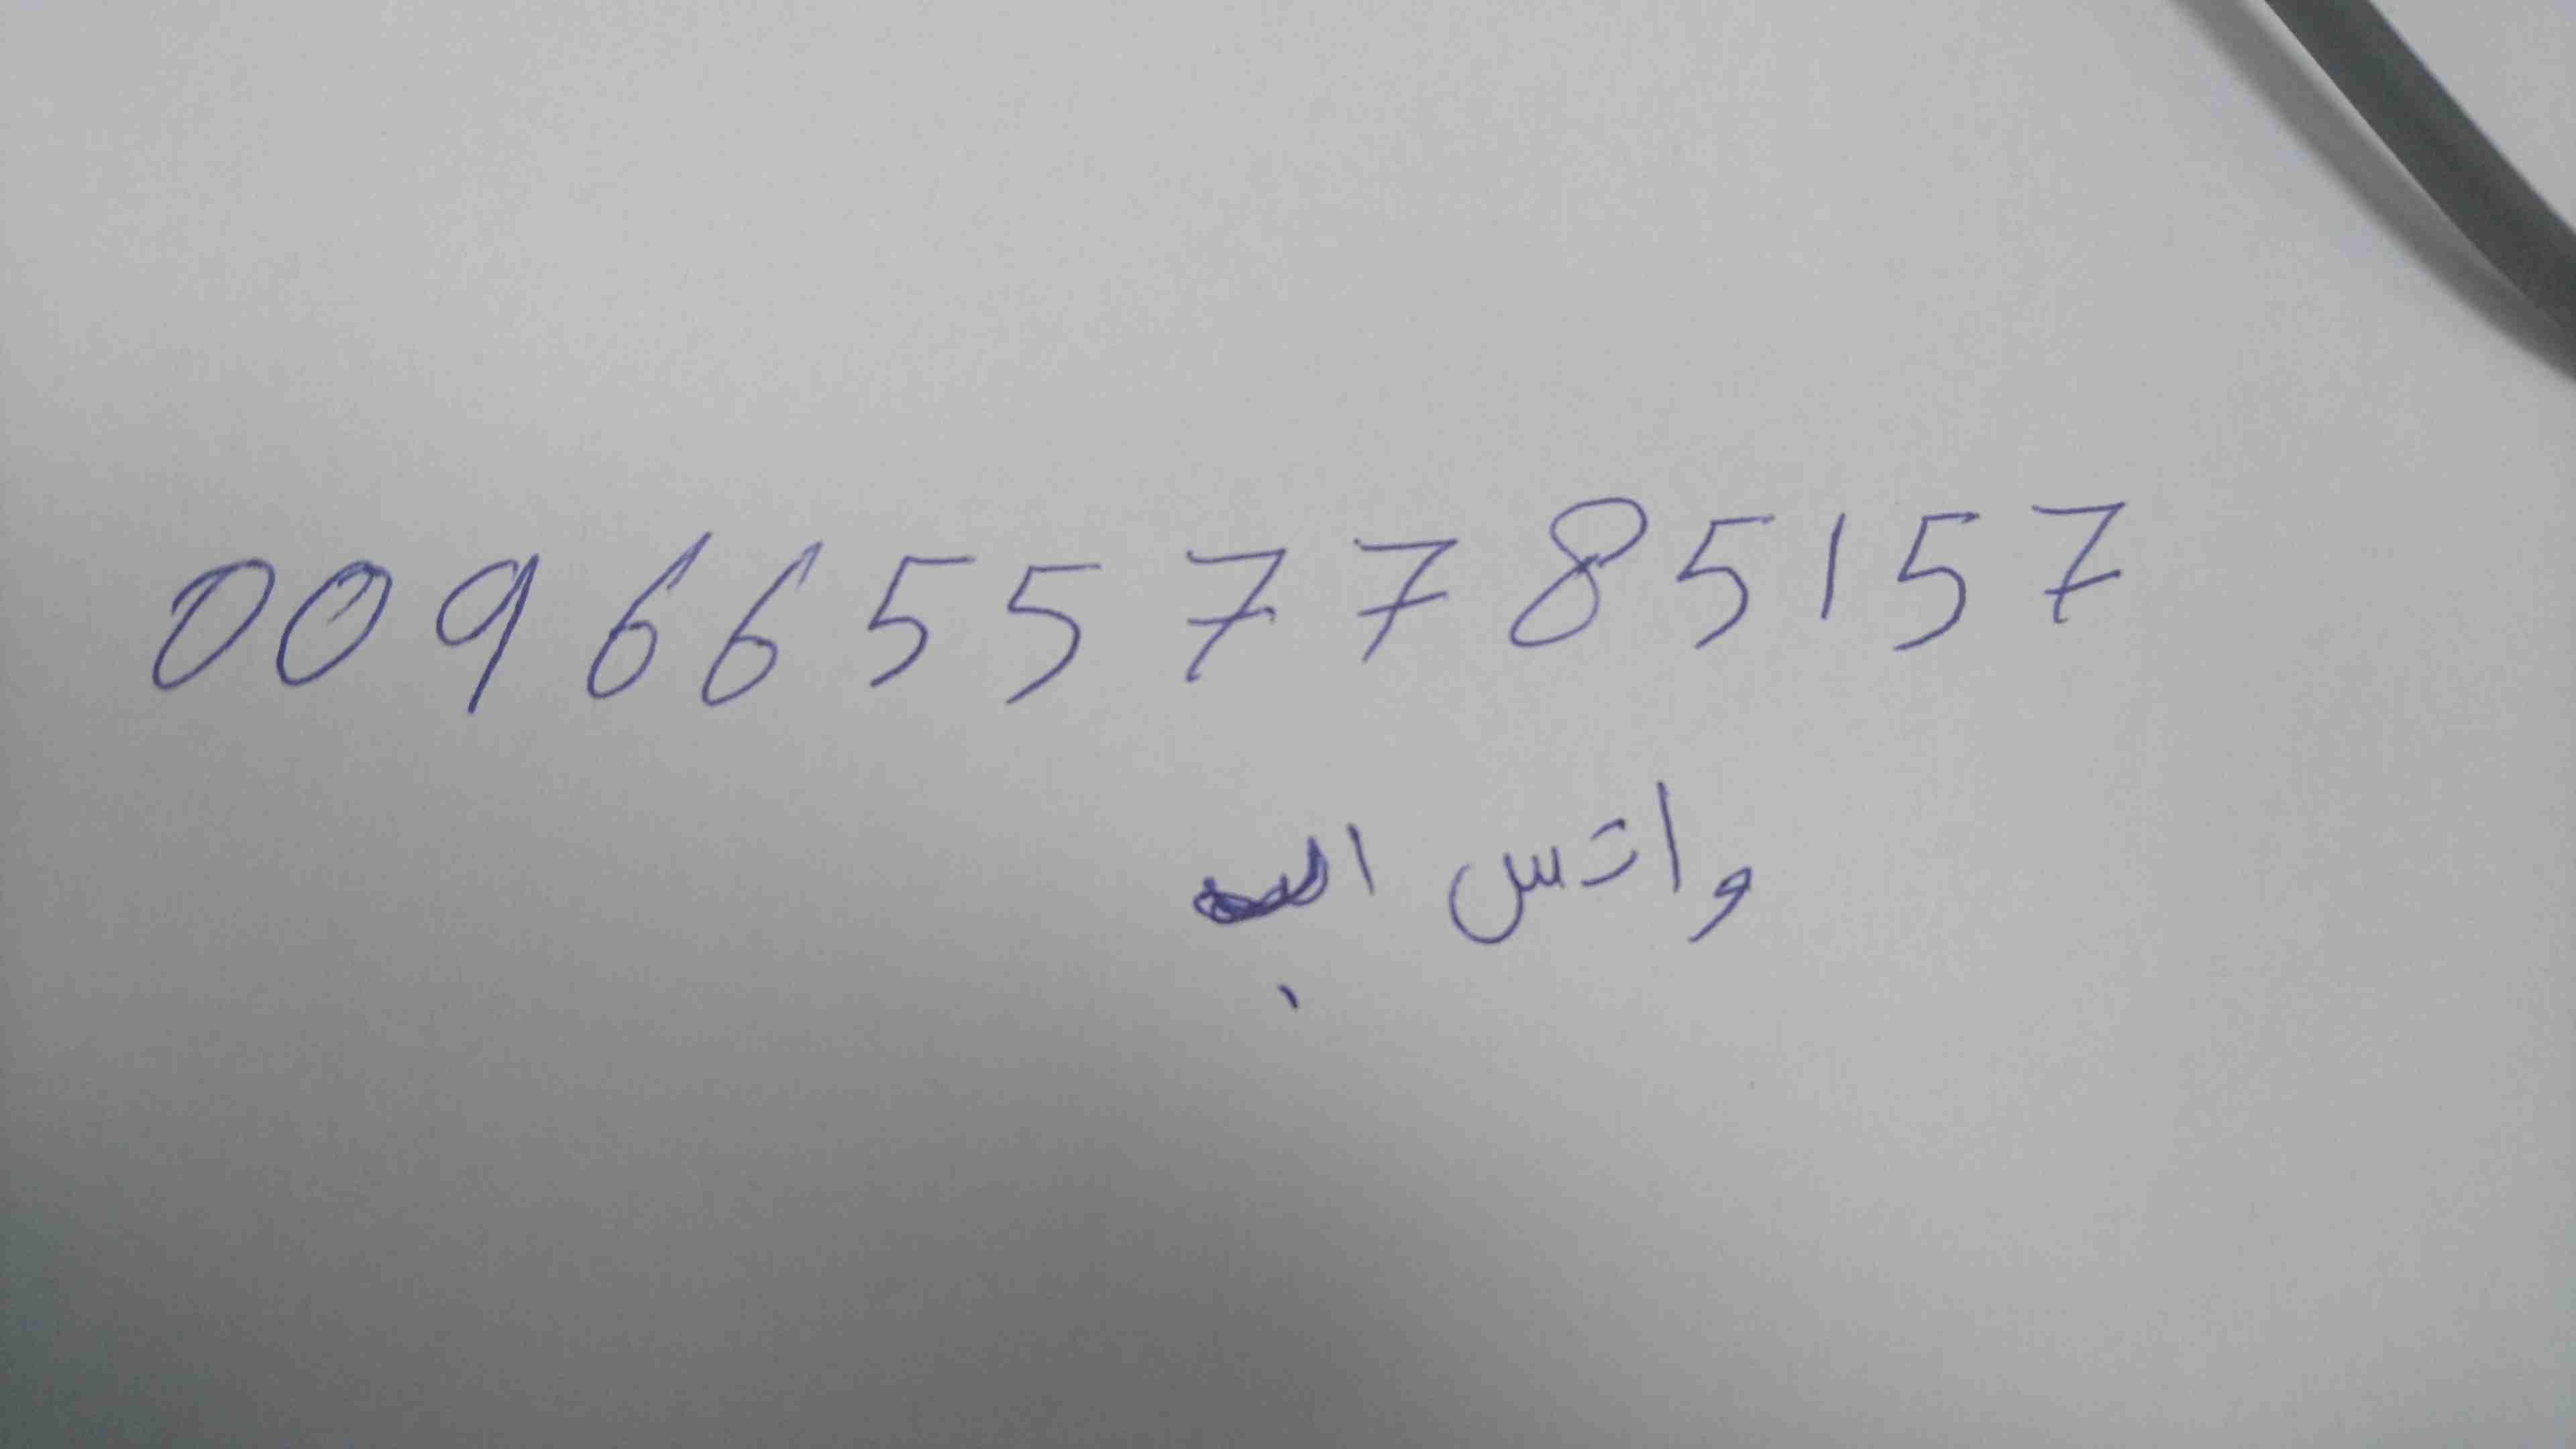 00966557785157
واتس اب